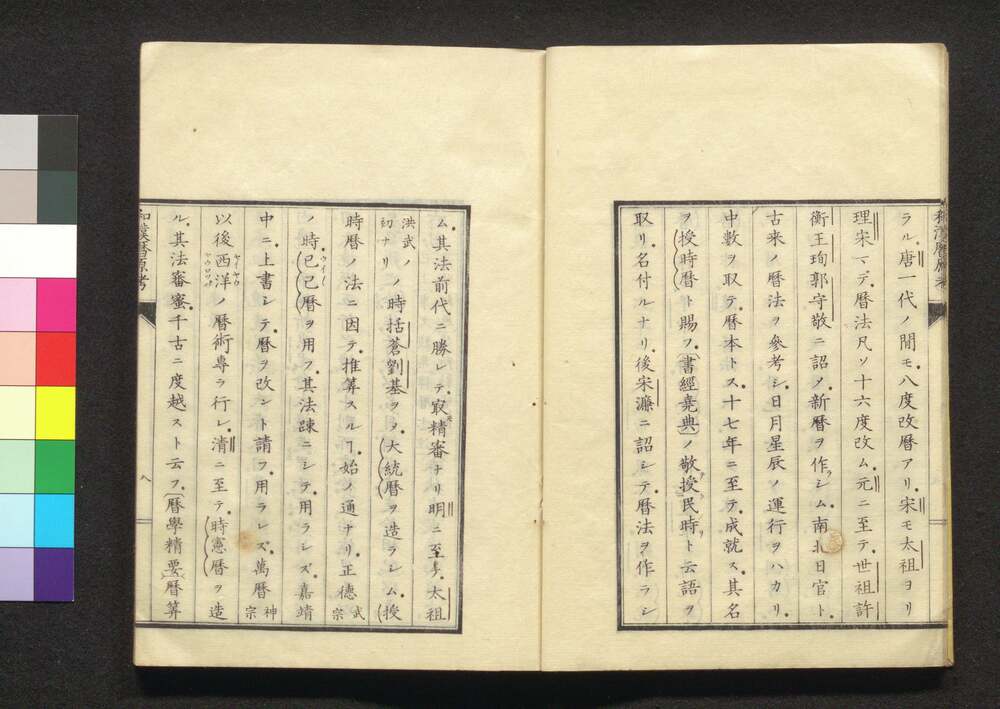 和漢暦原考
ラル。唐一代ノ間モ、八度改暦アリ。宋モ太祖ヨリ
理宋マデ、暦法凡ソ十六度改ム。元ニ至テ、世祖許
衡王珣郭守敬ニ詔メ、新暦ヲ作ラシム。南北日官ト、
古来ノ暦法ヲ參考シ、日月星辰ノ運行ヲハカリ、
中数ヲ取テ、暦本トス。十七年ニ至テ、成就ス。其名
ヲ授時暦ト賜フ。書經堯典ノ敬授民時ト云語ヲ
取リ、名付ルナリ。後宋濂ニ詔シテ、暦法ヲ作ラシ
ム。其法前代ニ勝レテ、㝡精審ナリ。明ニ至リ、太祖
洪武ノ初ナリノ時括蒼劉基ヲ乄、大統暦ヲ造ラシム。授
時暦ノ法ニ因テ、推筭スルヿ、始ノ通ナリ。正德武宗
ノ時、己巳暦ヲ用フ。其法踈ニシテ、用ラシズ。嘉靖
中ニ、上書シテ、暦ヲ改ント請フ。用ラレズ。萬暦神宗
以後西洋ノ暦術専ラ行レ、清ニ至テ、時憲暦ヲ造
ル。其法審蜜、千古ニ度越スト云フ。暦學精要暦筭
和漢暦原考
八